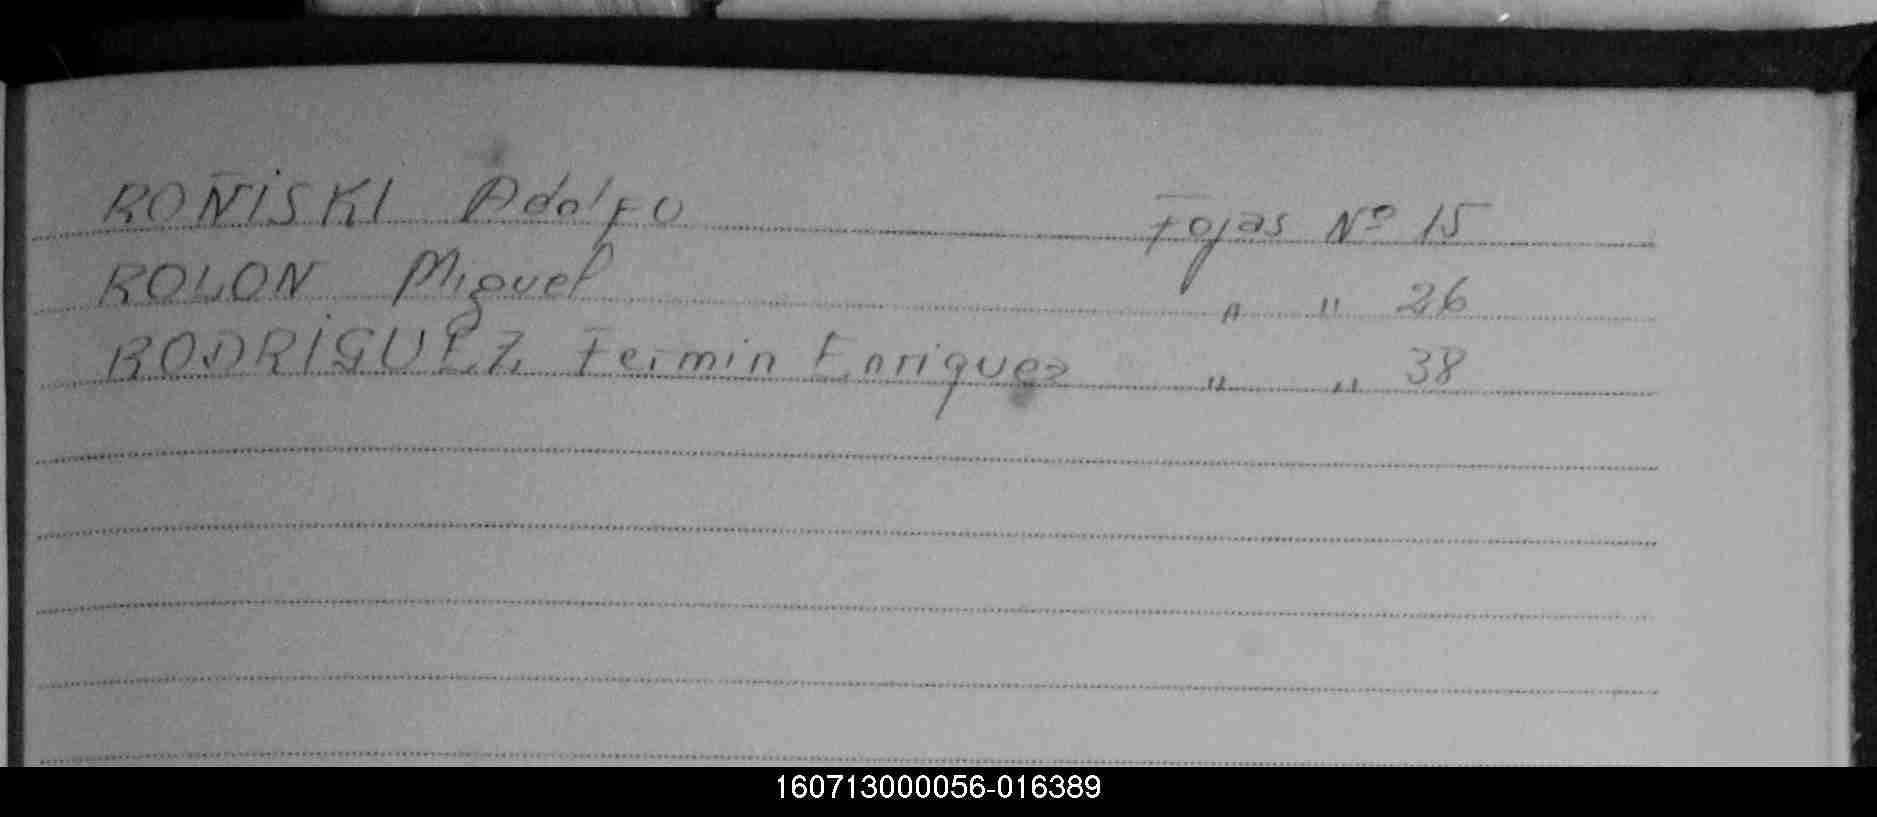 ROÑISKI Adolfo Fojas Nº 15
ROLON Miguel " " 26
RODRIGUEZ Fermin Enriquez " " 38
160713000056-016389